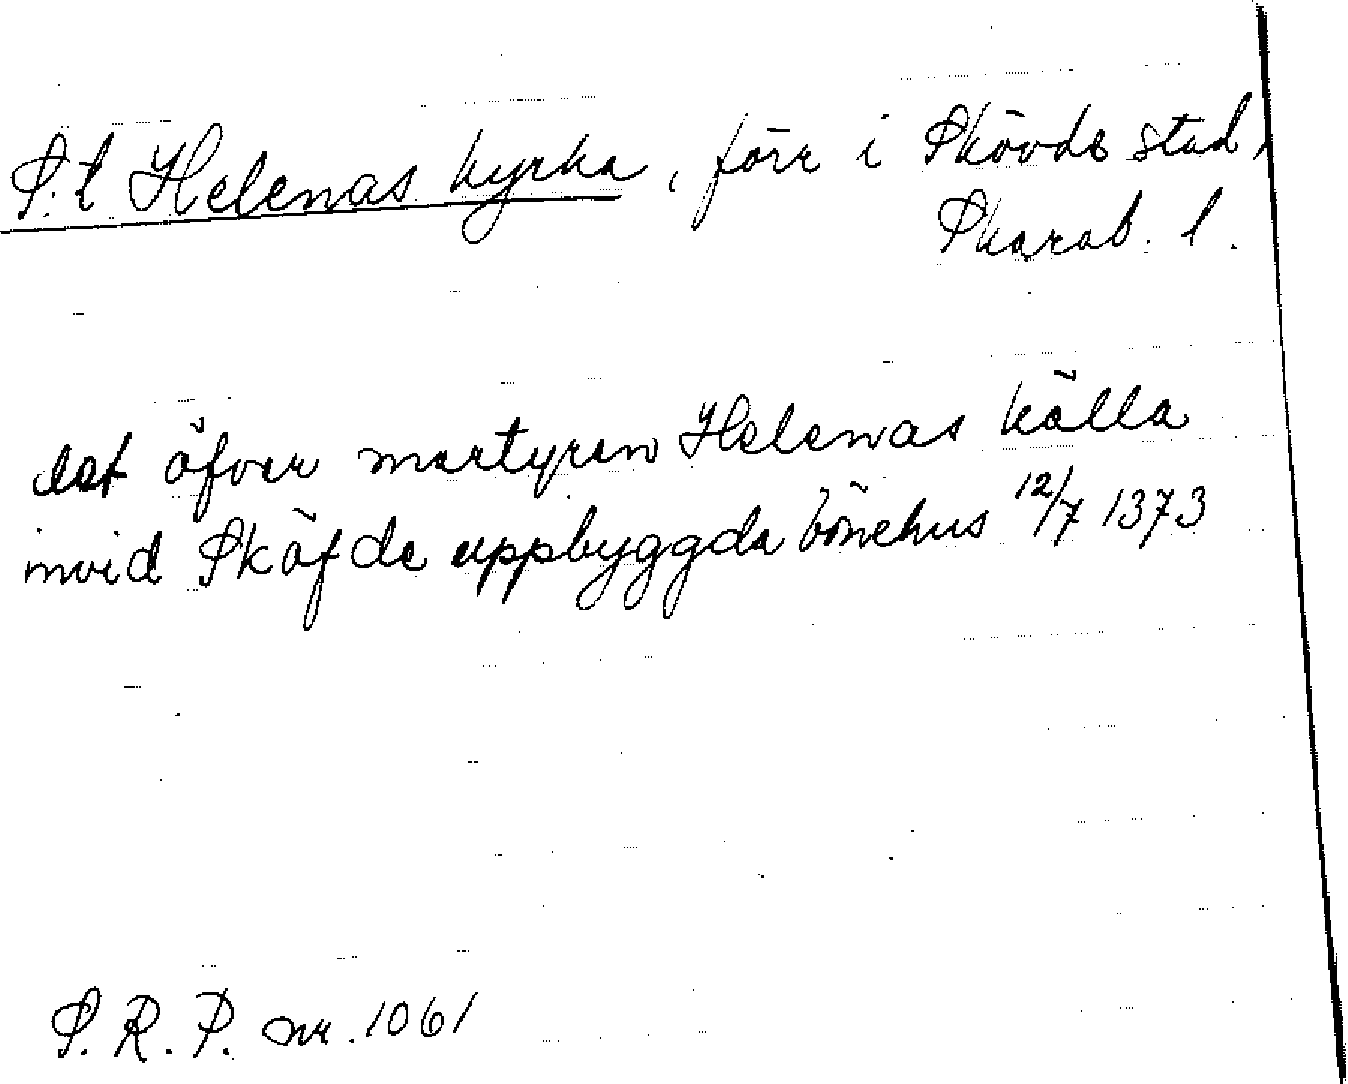 S:t Helenas kyrka, förr i Skövde stad,
Skarab. l.
det öfver martyren Helenas källa
invid Sköfde uppbyggda bönehus 12/7 1373
S. R. P. nr. 1061